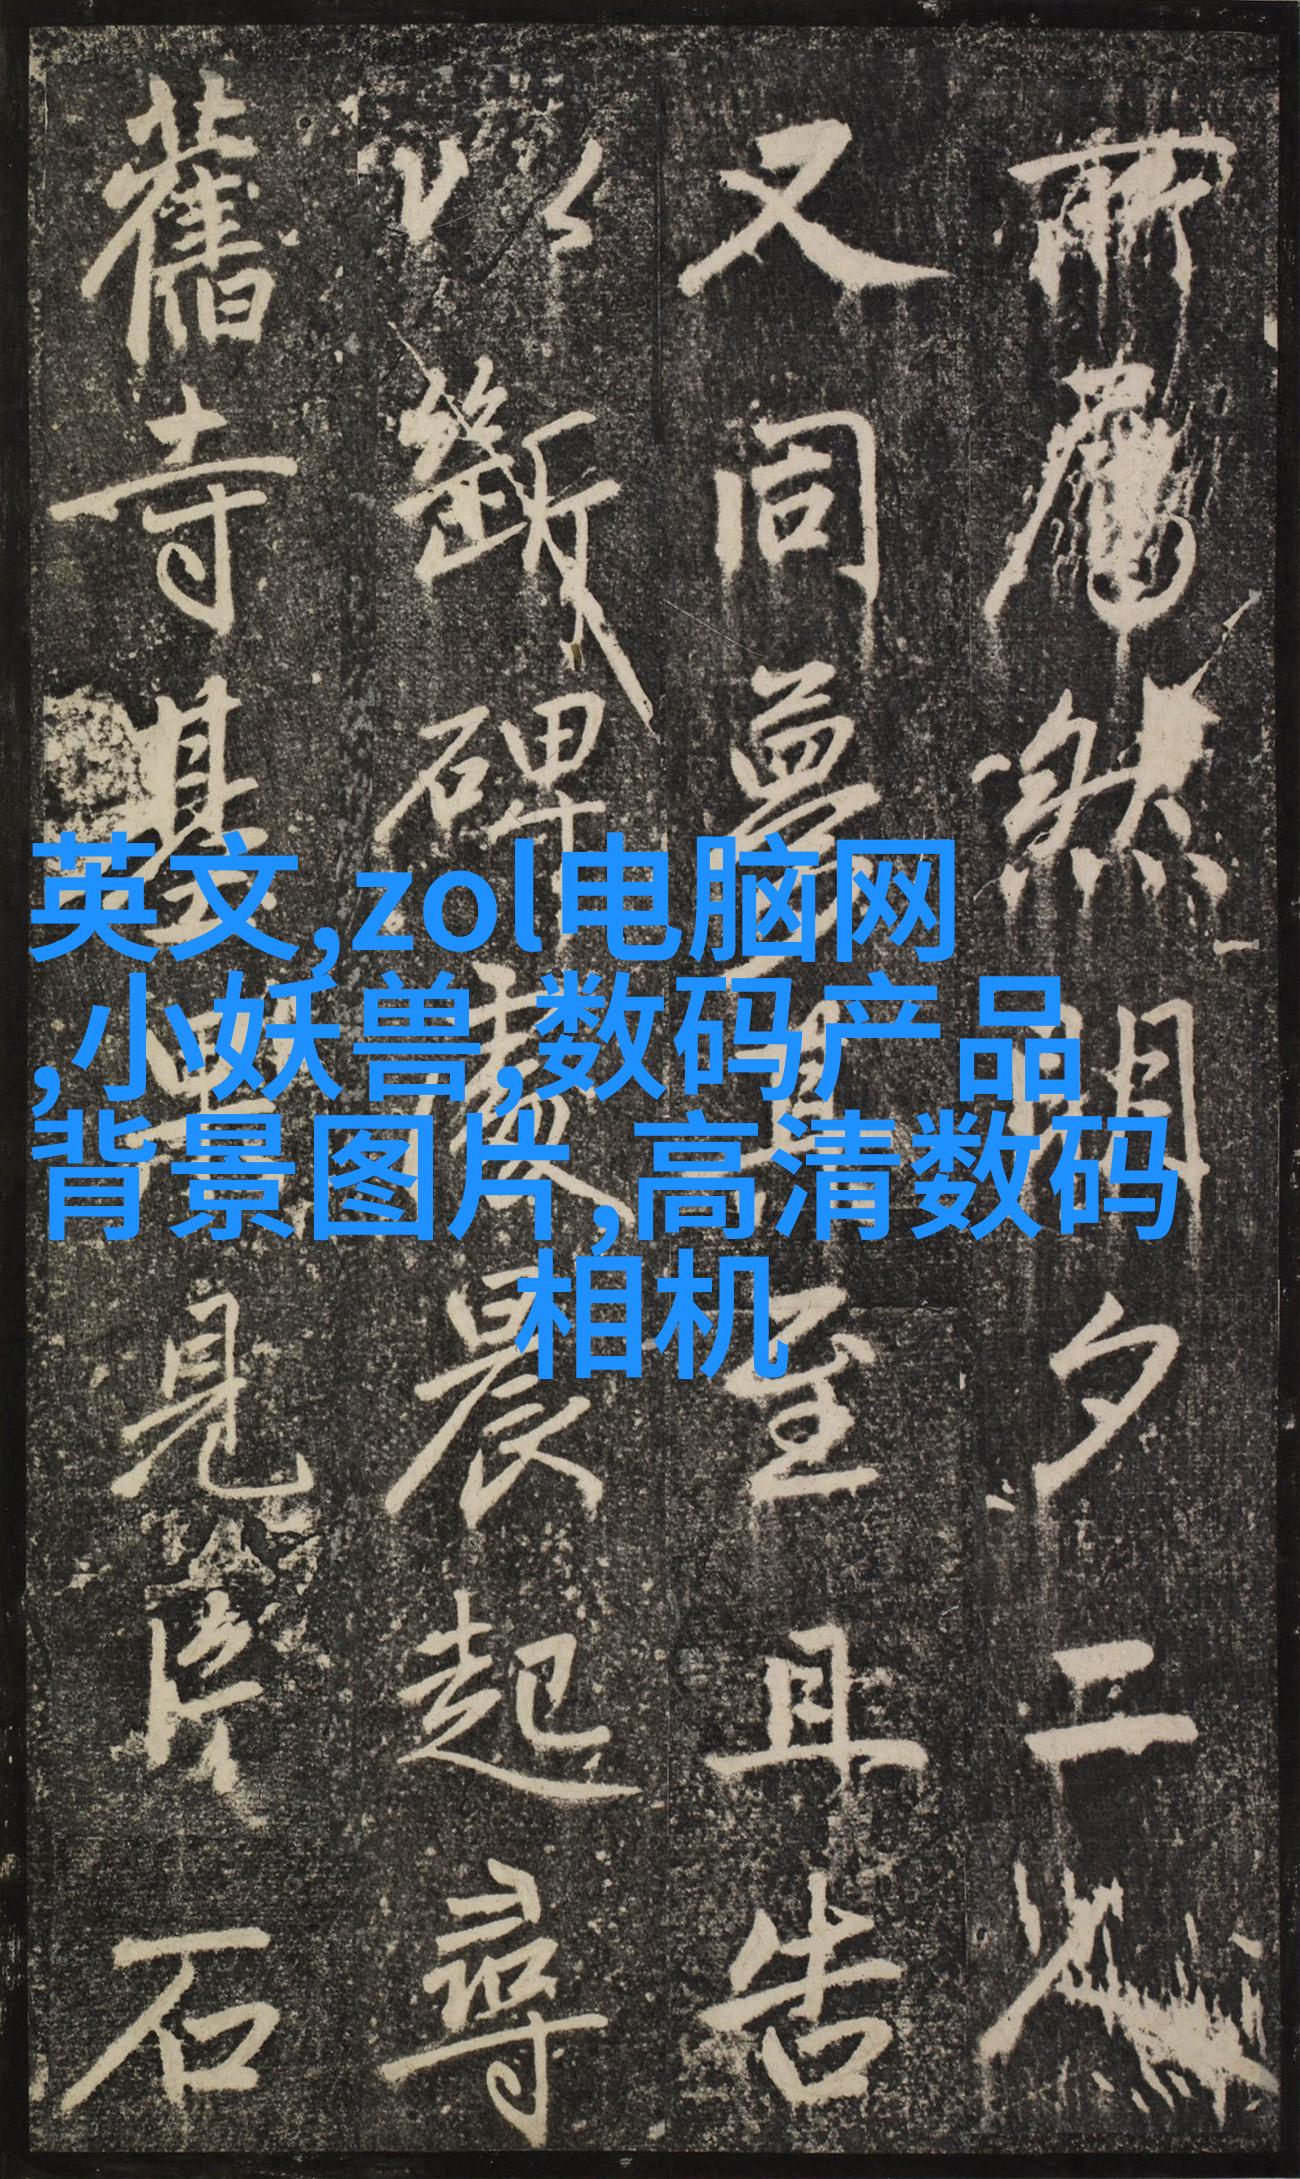 所然明夕二
又同夢其至且告
以斷碑處晨起尋
舊寺基果見片石
英文,zol电脑网
,小妖兽,数码产品
背景图片,高清数码
相机